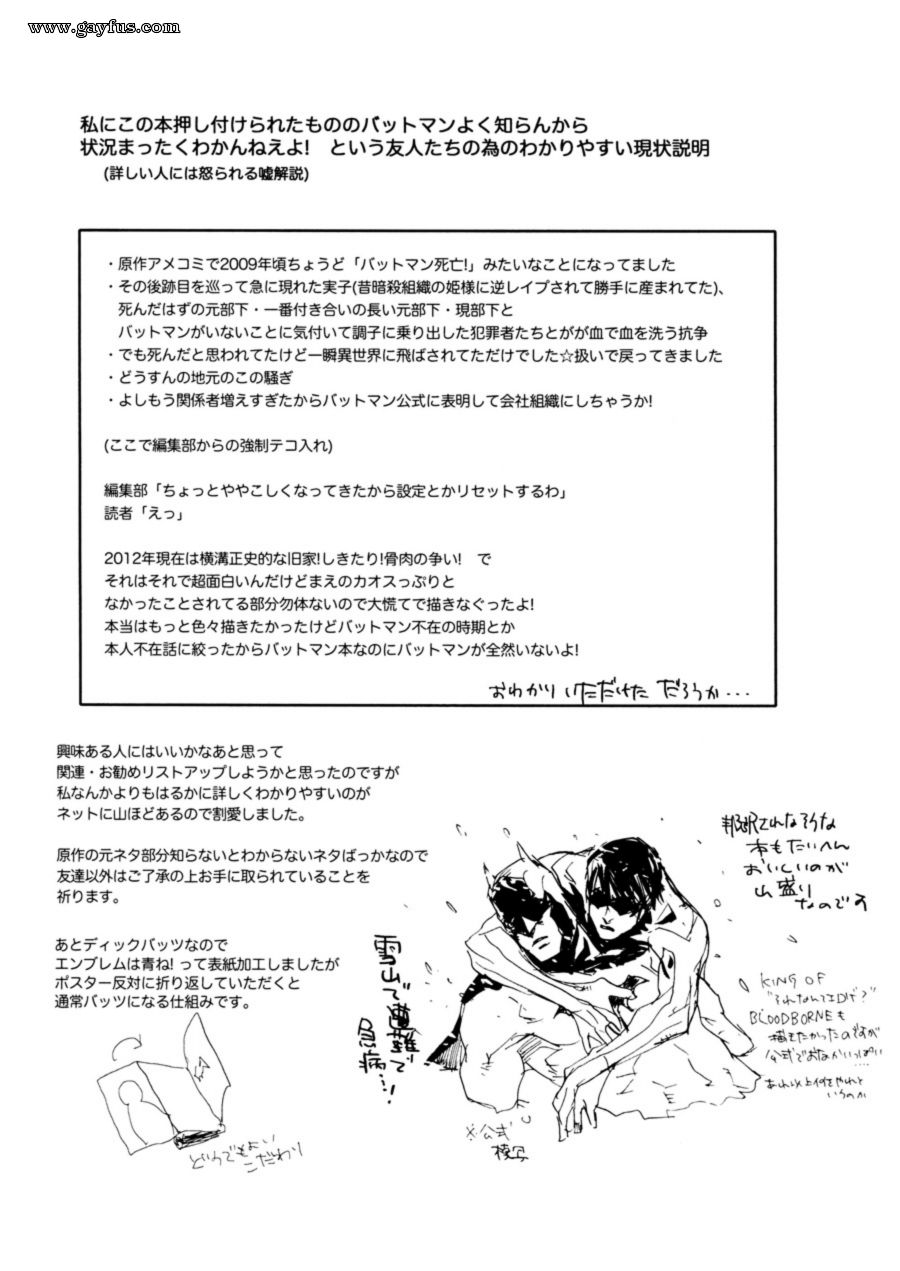 www.gayfus.com
私にこの本押し付けられたもののバットマンよく知らんから
状況まったくわかんねえよ!　という友人たちの為のわかりやすい現状説明
(詳しい人には怒られる嘘解説)
・原作アメコミで2009年頃ちょうど「バットマン死亡!」みたいなことになってました
・その後跡目を巡って急に現れた実子(昔暗殺組織の姫様に逆レイプされて勝手に産まれてた)、
死んだはずの元部下・一番付き合いの長い元部下・現部下と
バットマンがいないことに気付いて調子に乗り出した犯罪者たちとがが血で血を洗う抗争
・でも死んだと思われてたけど一瞬異世界に飛ばされてただけでした☆扱いで戻ってきました
・どうすんの地元のこの騒ぎ
・よしもう関係者増えすぎたからバットマン公式に表明して会社組織にしちゃうか!
(ここで編集部からの強制テコ入れ)
編集部「ちょっとややこしくなってきたから設定とかリセットするわ」
読者「えっ」
2012年現在は横溝正史的な旧家!しきたり!骨肉の争い!　で
それはそれで超面白いんだけどまえのカオスっぷりと
なかったことされてる部分勿体ないので大慌てで描きなぐったよ!
本当はもっと色々描きたかったけどバットマン不在の時期とか
本人不在話に絞ったからバットマン本なのにバットマンが全然いないよ!
おわかりいただけただろうか...
興味ある人にはいいかなあと思って
関連・お勧めリストアップしようかと思ったのですが
私なんかよりもはるかに詳しくわかりやすいのが
ネットに山ほどあるので割愛しました。
原作の元ネタ部分知らないとわからないネタばっかなので
友達以外はご了承の上お手に取られていることを
祈ります。
あとディックバッツなので
エンブレムは青ね! って表紙加工しましたが
ポスター反対に折り返していただくと
通常バッツになる仕組みです。
どうでもよい
こだわり
雪山で遭難して
※公式
邦訳されなそうな
本もたいへん
おいしいのが
山盛り
なのです
KING OF
"それなんてエロゲ?"
BLOODBORNEも
描きたかったのですが
公式でおなかいっぱい....
あれ以上何をやれと
いうのか